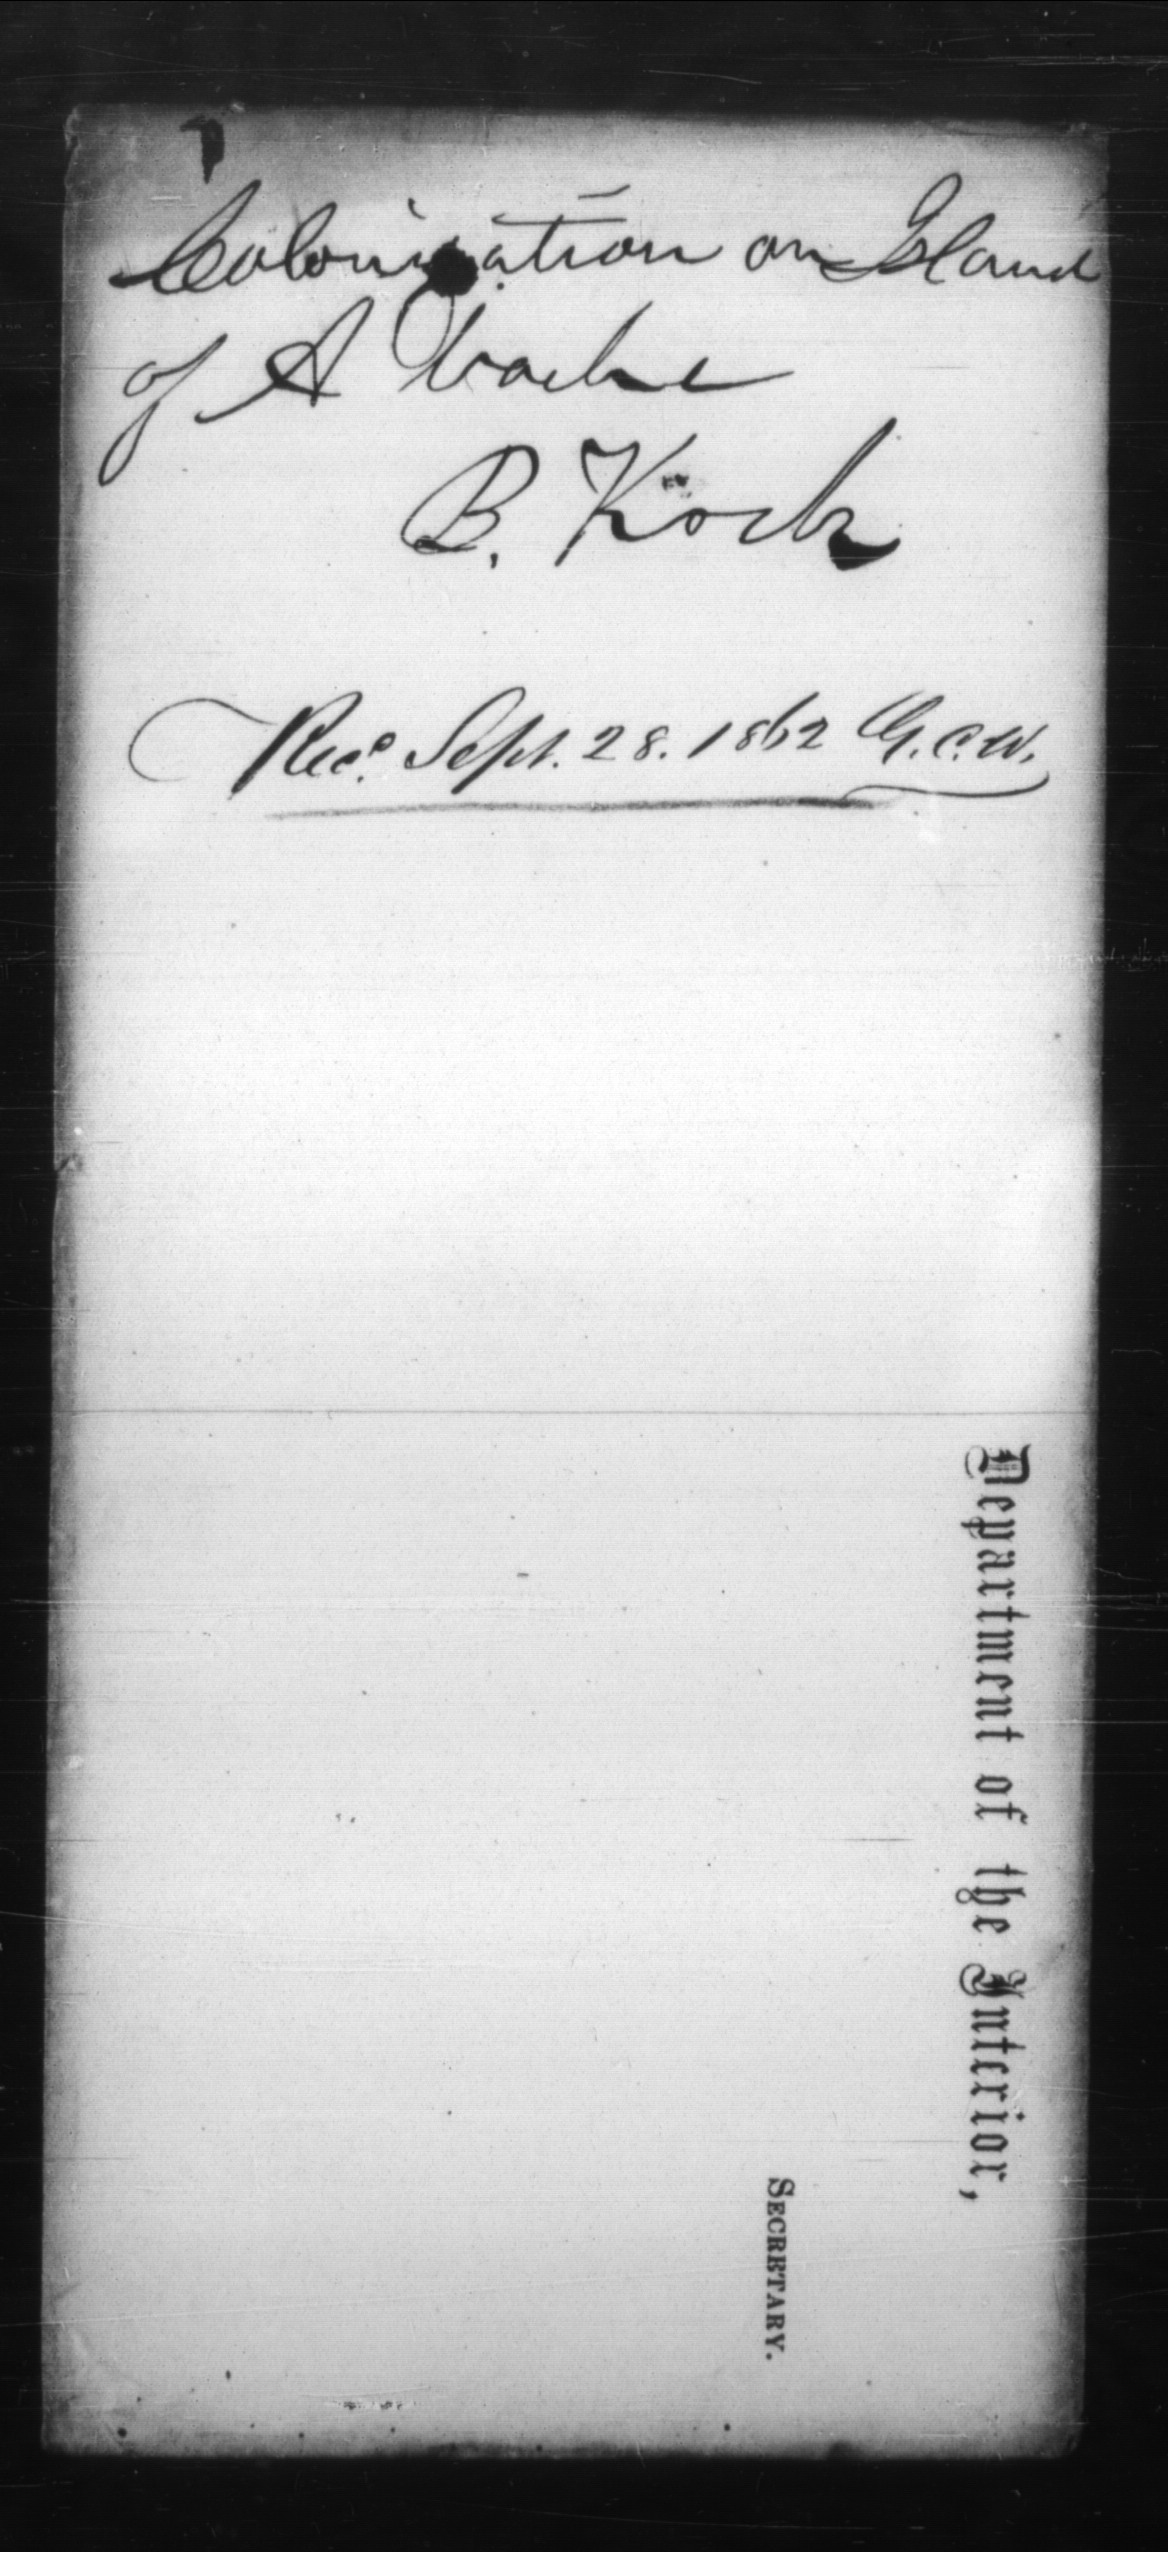 Colonization on Island
of A Vache
B. Kock
Rec.d Sept. 28. 1862 G.C.W.
Department of the Interior,
SECRETARY.